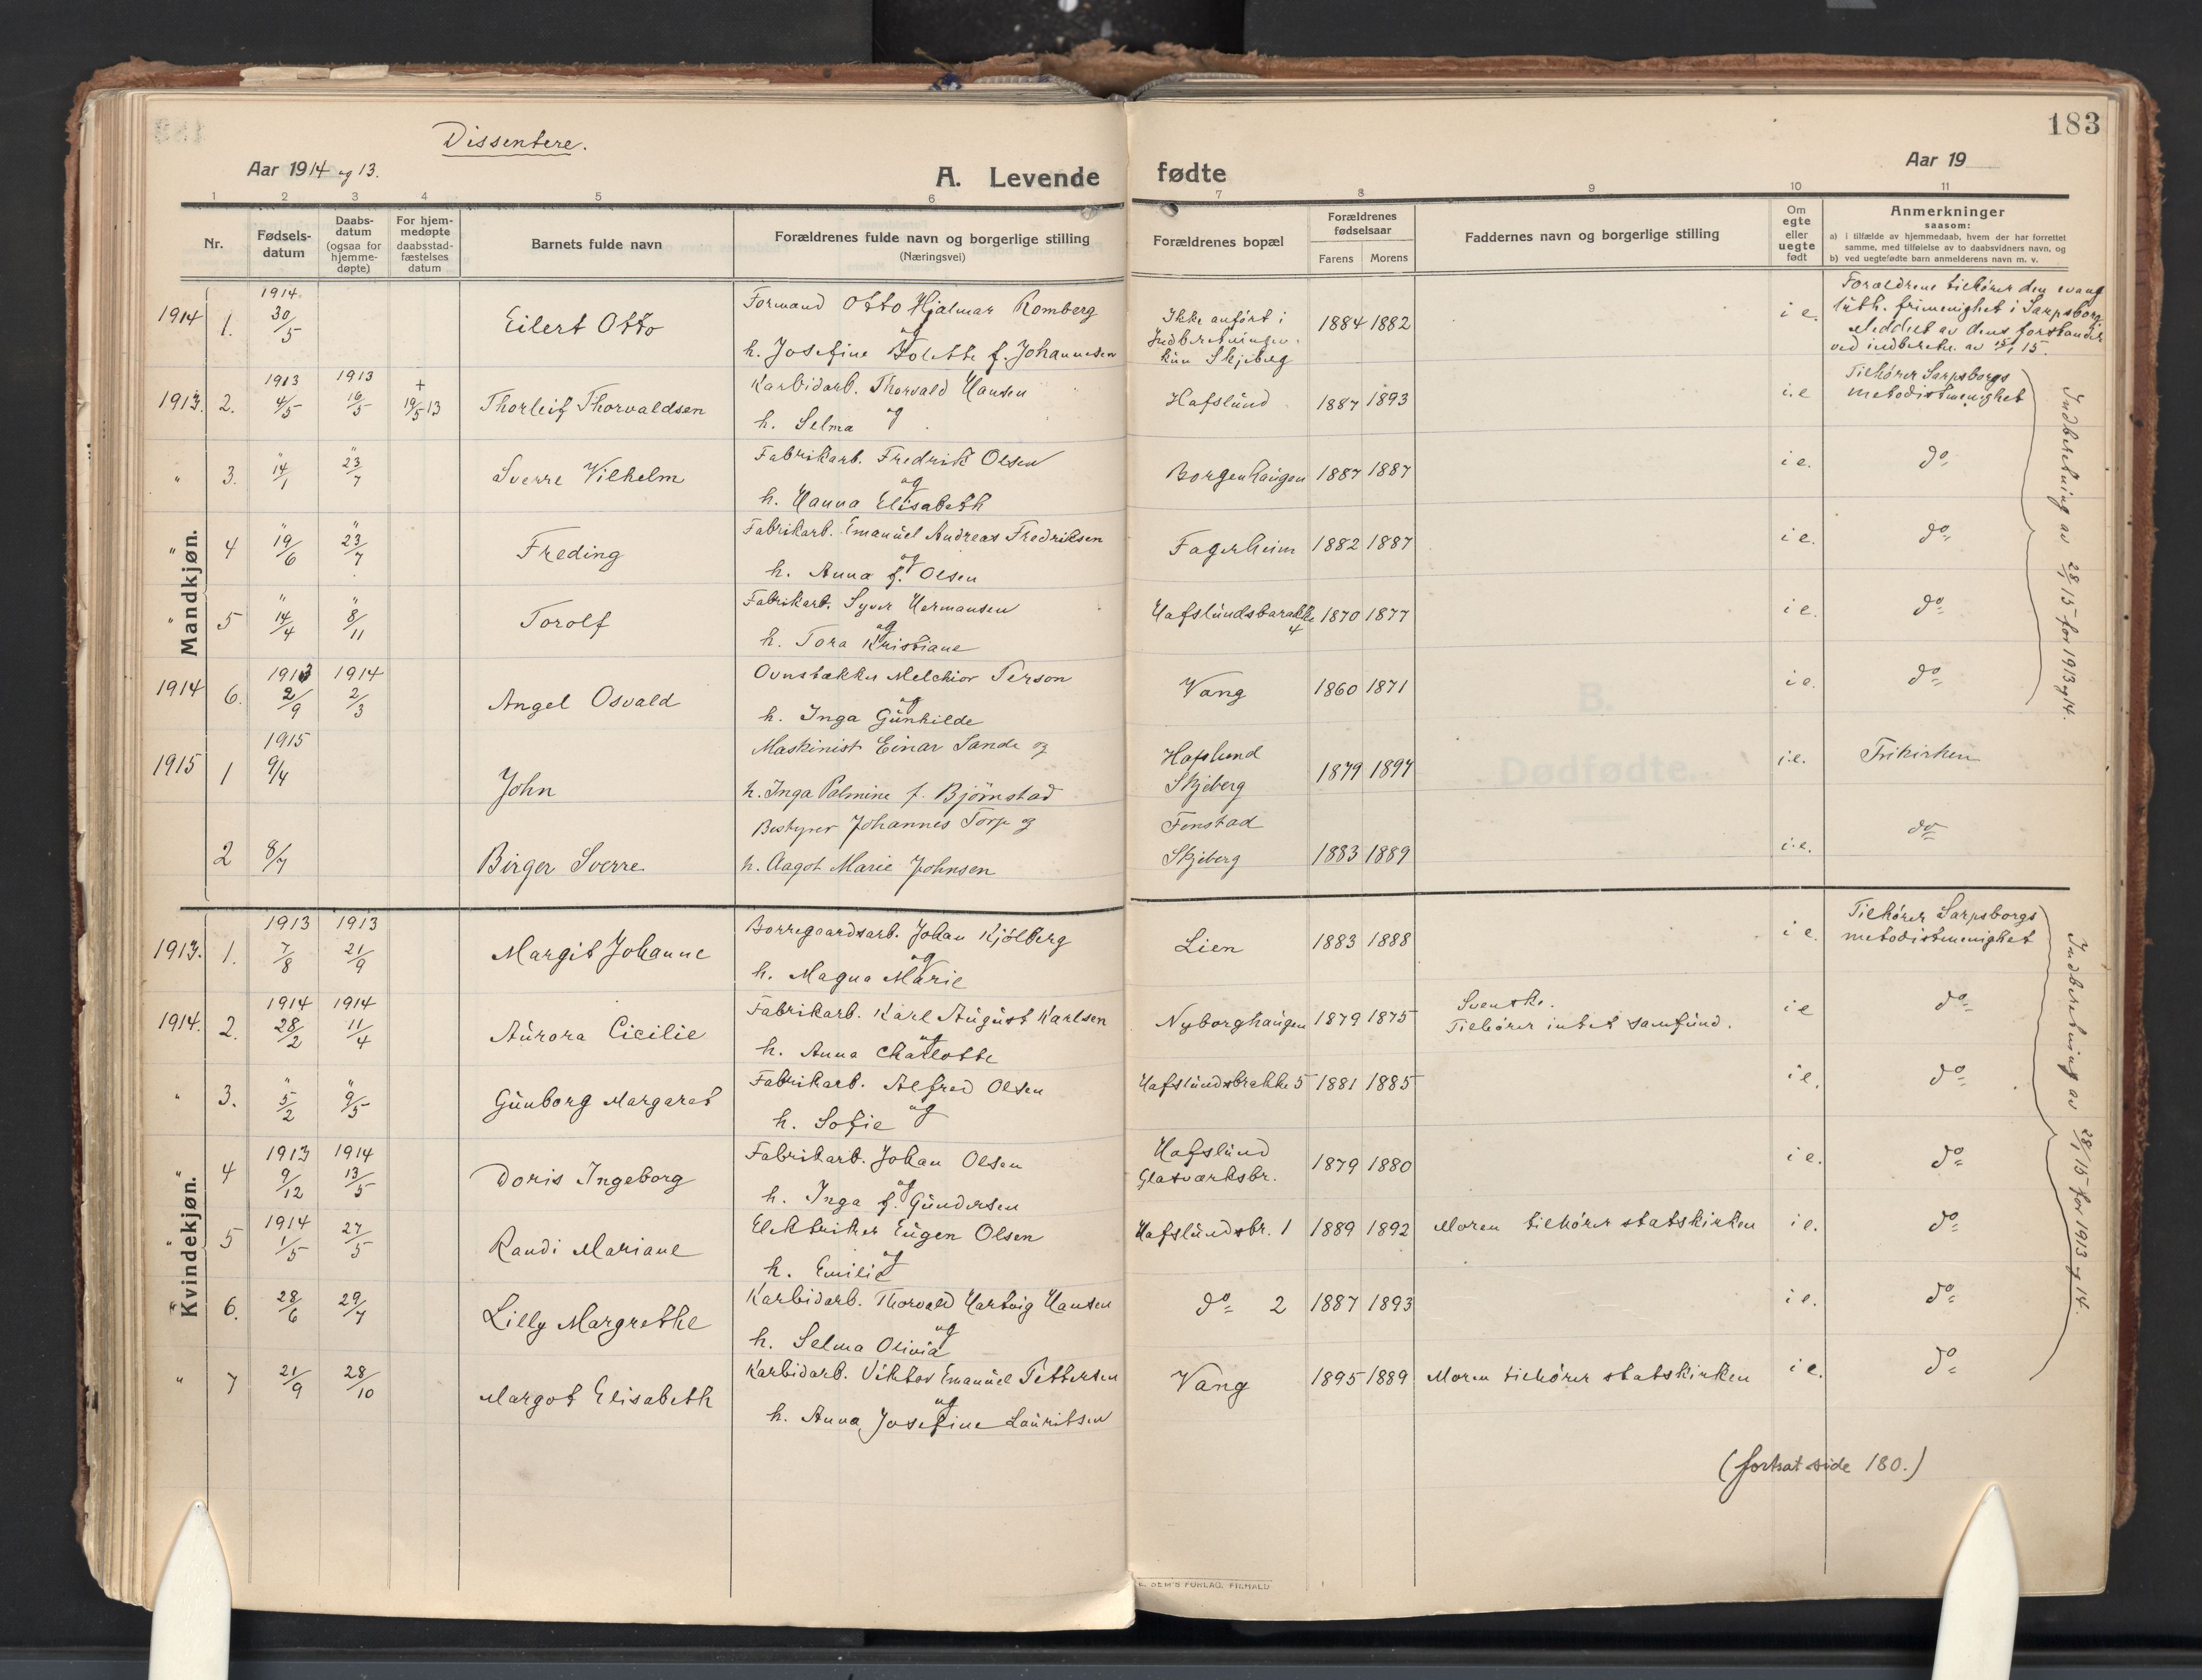 183
Dissentere.
Aar 1914 og 13.
A. Levende fødte
Aar 19
1 2 3 4 5 6 7 8 9 10 11
Nr.
Fødsels-
datum
Daabs-
datum
(ogsaa for
hjemme-
døpte)
For hjem-
medøpte
daabsstad-
fæstelses
datum
Barnets fulde navn
Forældrenes fulde navn og borgerlige stilling
(Næringsvei)
Forældrenes bopæl
Forældrenes
fødselsaar
Farens Morens
Faddernes navn og borgerlige stilling
Om
egte
eller
uegte
født
Anmerkninger
saasom:
a) i tilfælde av hjemmedaab, hvem der har forrettet
samme, med tilføielse av to daabsvidners navn, og
b) ved uegtefødte barn anmelderens navn m. v.
Mandkjøn.
1914 1. 1914 30/5 Eilert Otto
Formand Otto Hjalmar Romberg
og
h. Josefine Tolette f. Johannesen
Ikke anført i
Indberetningen.
kun Skjeberg
1884 1882 i e.
Forældrene tilhører den evang
luth. frimenighet i Sarpsborg
Meddelt av dens forstander
ved indberetn. av 15/1 15.
1913. 2. 1913 4/5 1913 16/5 + 19/5 13 Thorleif Thorvaldsen
Karbidarb. Thorvald Hansen
og
h. Selma
Hafslund 1887 1893 i.e
Tilhører Sarpsborgs
metodistmenighet
" 3. " 14/1 " 23/7 Sverre Vilhelm
Fabrikarb. Fredrik Olsen
og
h. Hanna Elisabeth
Borgenhaugen 1887 1887 i e. do
" 4 " 19/6 " 23/7 Freding
Fabrikarb. Emanuel Andreas Fredriksen
og
h. Anna f. Olsen
Fagerheim 1882 1887 i e. do
" 5 " 14/4 " 8/11 Torolf
Fabrikarb. Syver Hermansen
og
h. Tora Kristiane
Hafslundsbarakke
4
1870 1877 i e. do
1914 6. 1913 2/9 1914 2/3 Angel Osvald
Ovnstækker Melchior Person
og
h. Inga Gunhilde
Vang 1860 1871 i e. do
Indberetning av 28/1 15 for 1913 og 14.
1915 1 1915 9/4 John
Maskinist Einar Sande og
h. Inga Palmine f. Bjørnstad
Hafslund
Skjeberg
1879 1894 i.e. Frikirken
2 8/7 Birger Sverre
Bestyrer Johannes Torp og
h. Aagot Marie Johnsen
Fonstad
Skjeberg
1883 1889 i.e. do
Kvindekjøn.
1913. 1. 1913 7/8 1913 21/9 Margit Johanne
Borregaardsarb. Johan Kjølberg
og
h. Magna Marie
Lien 1883 1888 i e.
Tilhører Sarpsborgs
metodistmenighet
1914. 2. 1914 28/2 1914 11/4 Aurora Cicilie
Fabrikarb. Karl August Karlsen
og
h. Anna Charlotte
Nyborghaugen 1879 1875
Svenske.
Tilhører intet samfund.
i e do
" 3. " 5/2 " 9/5 Gunborg Margaret
Fabrikarb. Alfred Olsen
og
h. Sofie
Hafslundsbrakke 5 1881 1885 i e. do
" 4 1913 9/12 1914 13/5 Doris Ingeborg
Fabrikarb. Johan Olsen
og
h. Inga f. Gundersen
Hafslund
Glasværksbr.
1879 1880 i e. do
" 5 1914 1/5 27/5 Randi Mariane
Elektriker Eugen Olsen
og
h. Emilie
Hafslundsbr. 1 1889 1892 Moren tilhører statskirken i e. do
" 6. 28/6 29/7 Lilly Margrethe
Karbidarb. Thorvald Hartvig Hansen
og
h. Selma Olivia
do 2 1887 1893 i e. do
" 7 21/9 28/10 Margot Elisabeth
Karbidarb. Viktor Emanuel Pettersen
og
h. Anna Josefine Lauritsen
Vang 1895 1889 Moren tilhører statskirken i e. do
Indberetning av 28/1 15 for 1913 og 14.
(fortsat side 180.)
E. SEM'S FORLAG, FR.HALD